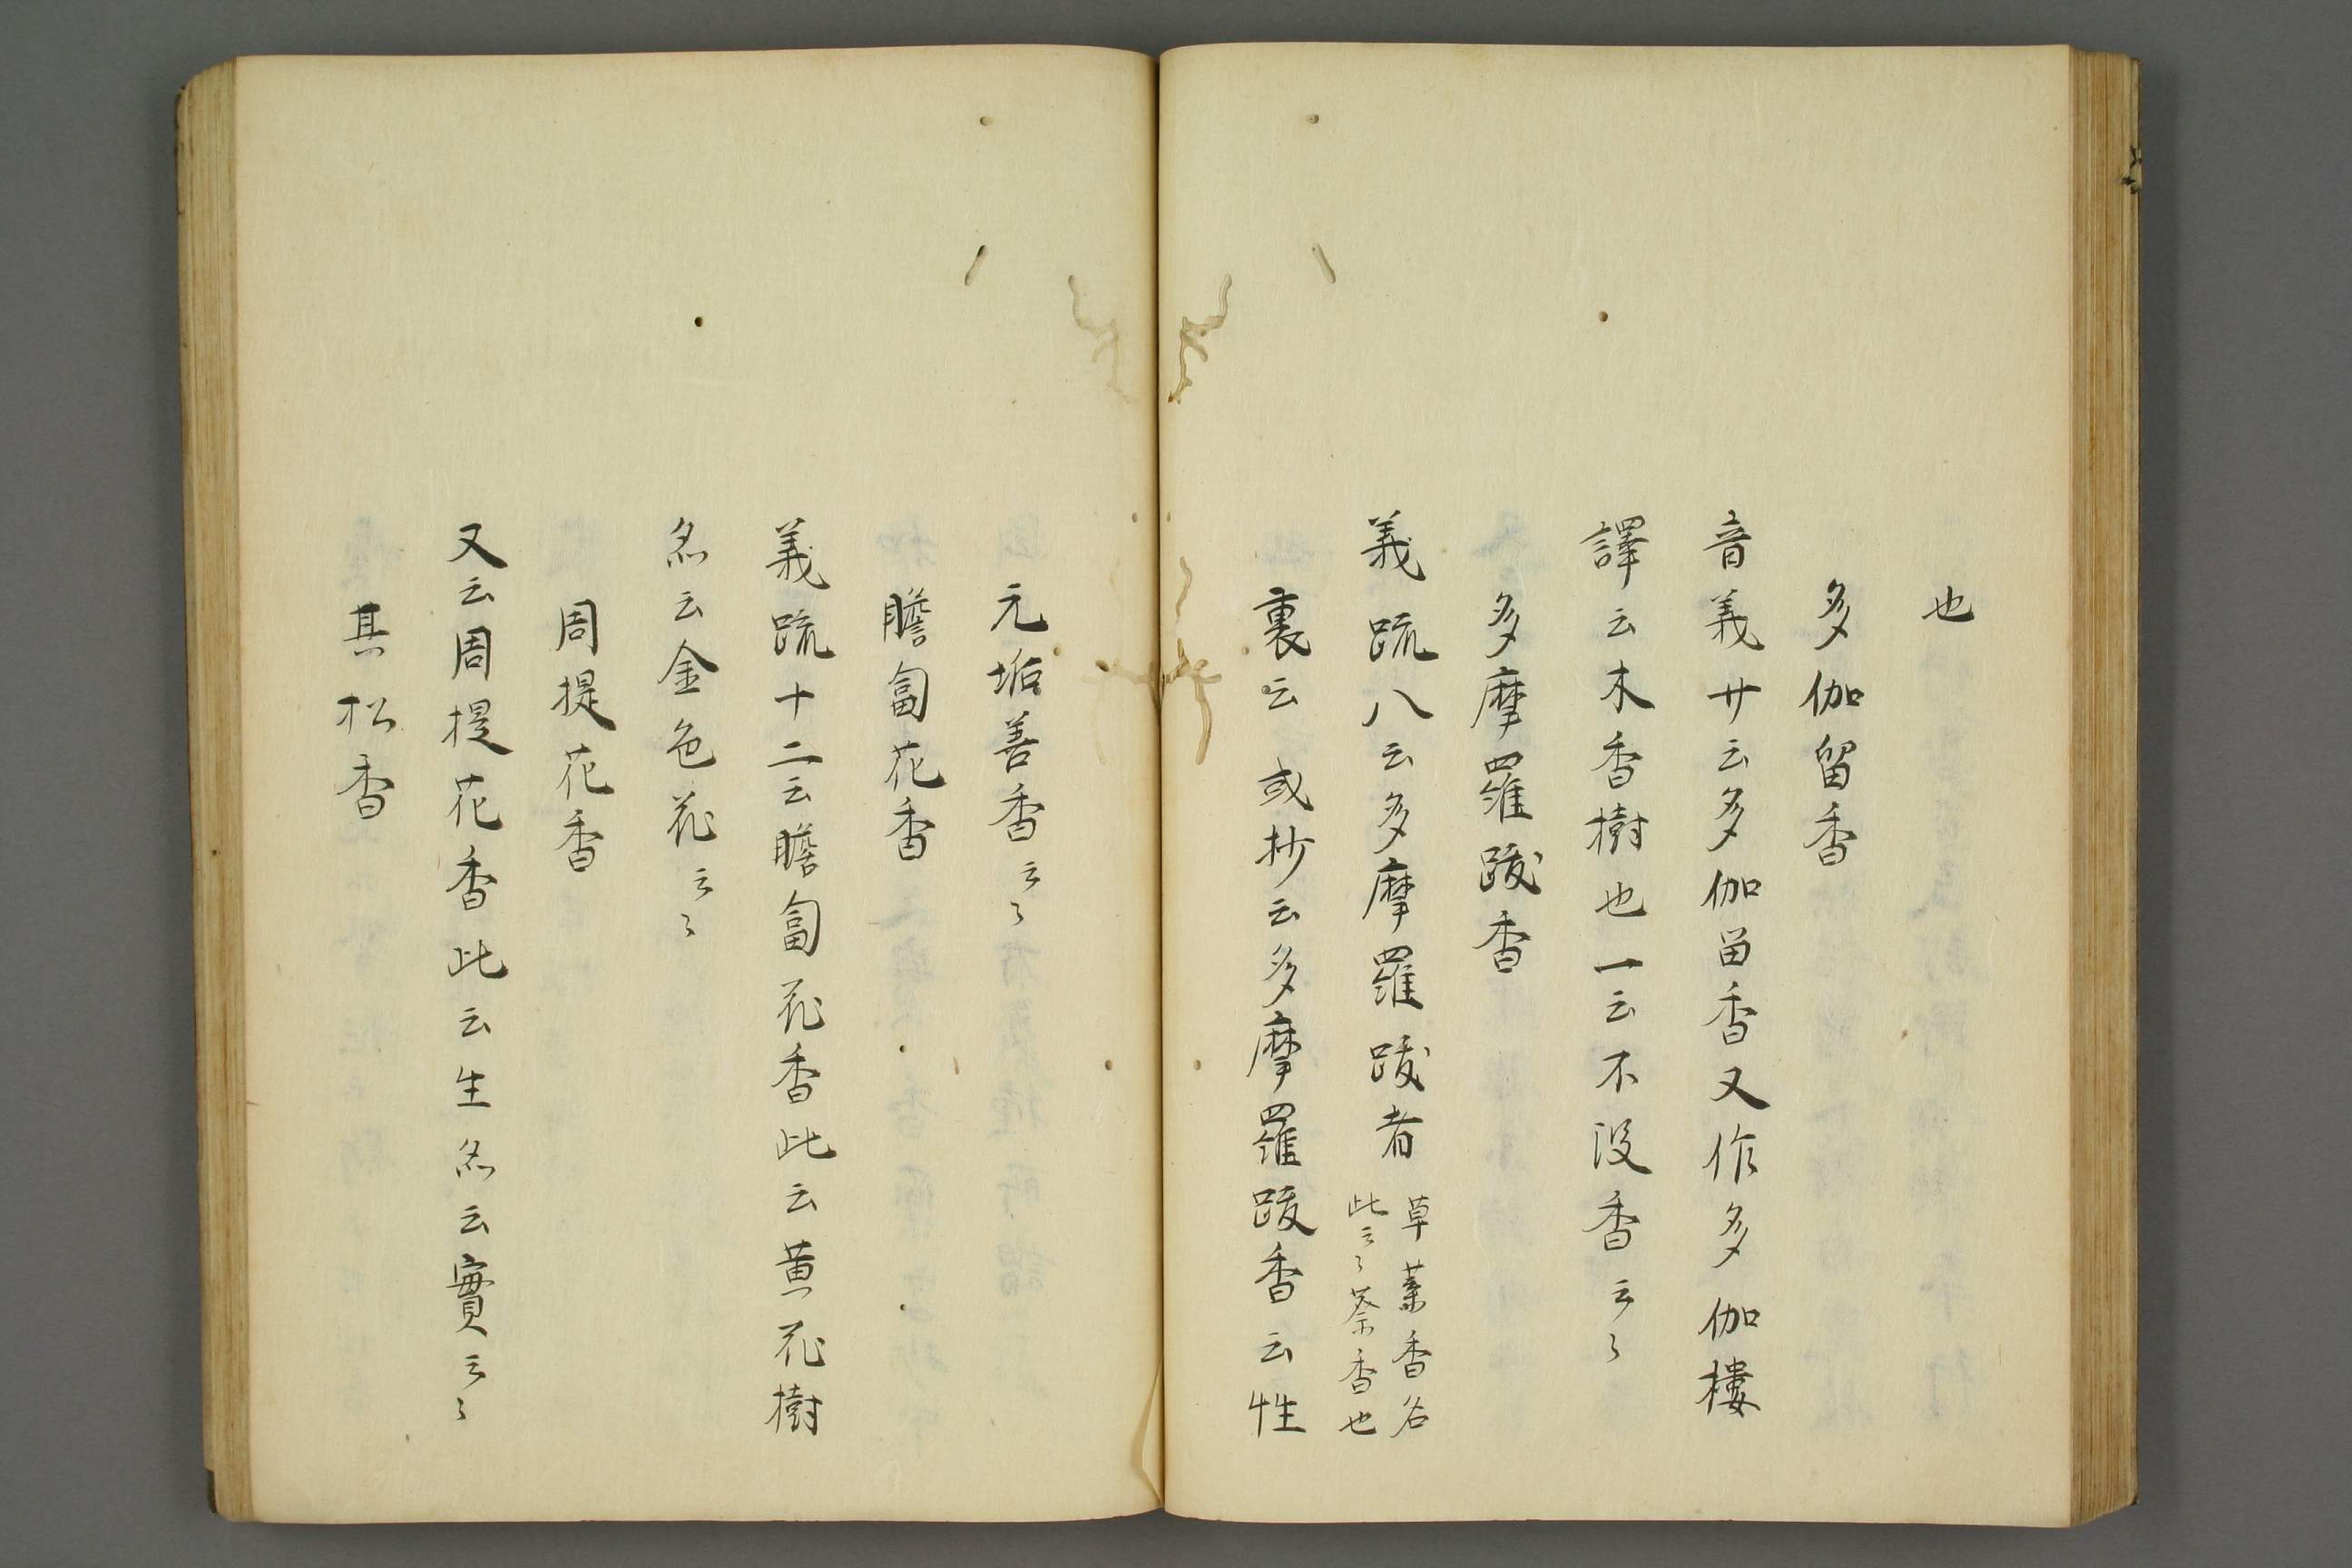 也
多伽留香
音義廿云多伽留香又作多伽樓
譯云木香樹也一云不没香云〻
多摩羅跋香
義疏八云多摩羅跋者草藁香名
此云〻藿香也
裏云或抄云多摩羅跋香云性
无垢善香云〻
瞻匐花香
義疏十二云瞻匐花香此云黄花樹
名云金色花云〻
周提花香
又云周提花香此云生名云實云〻
其松香